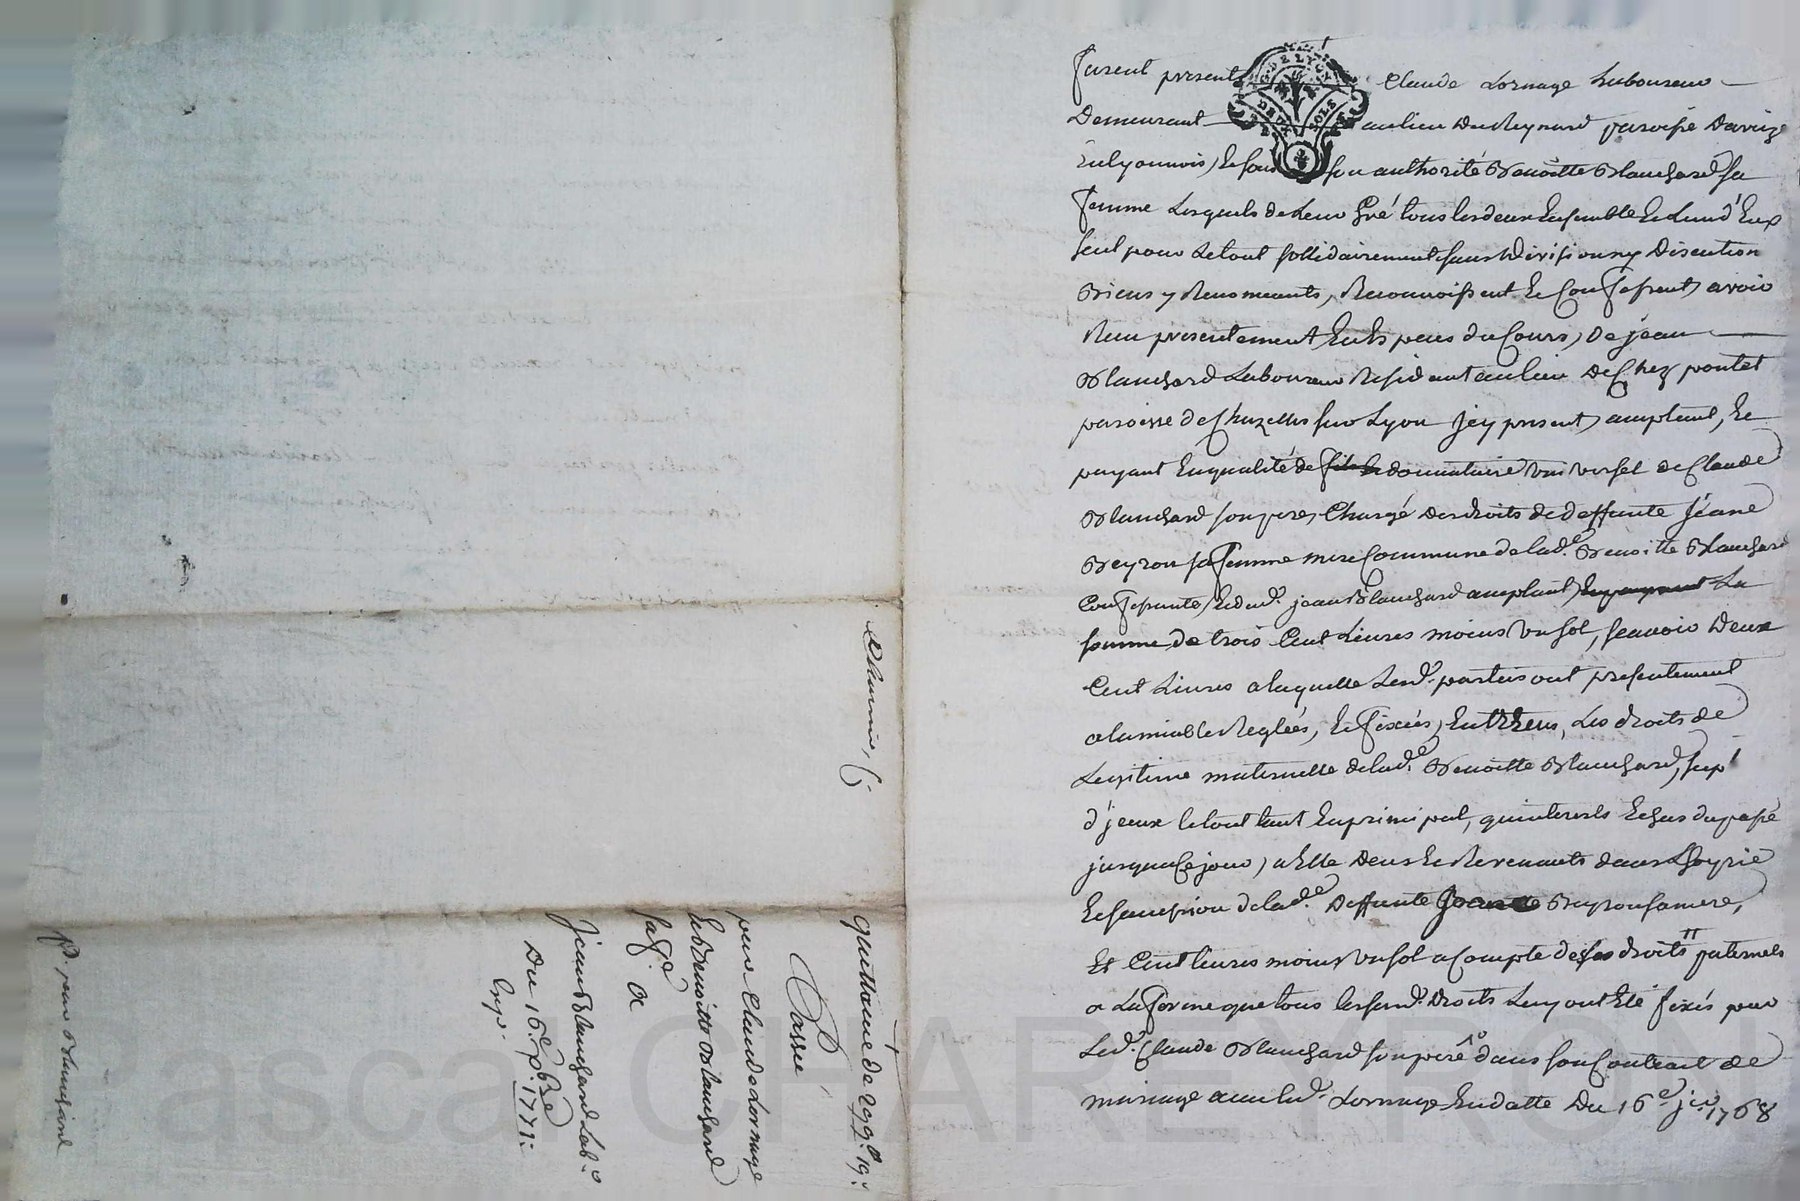 furent presents Claude Lornage Laboureur
Demeurant au lieu Du Reynard paroisse Daveize
En lyonnois, Et sous son authorité Benoitte Blanchard sa
femme Lesquels de Leur gré tous les deux Ensemble Et Lun d'Eux
seul pour Le tout sollidairement sans Division ny Discution
Biens y Renonceants, Reconnoissent Et Confessent avoir
Reçu presentement En Especes du Cours, De jean
Blanchard Laboureur Residant au lieu De Chez pontet
paroisse de Chazelles sur Lyon jcy present acceptant, Et
payant En qualité de donnataire universel de Claude
Blanchard son pere, Chargé Des droits de deffunte Jeane
Beyron sa femme mere Commune de lad.e Benoitte Blanchard
Confessante, Et dud. jean Blanchard acceptant La
somme de trois Cent Livres moins un sol, scavoir Deux
Cent Livres a laquelle Lesd. parties ont presentement
a lamiable Reglés, Et fixées, Entre Eux, Les droits de
Legitime maternelle de lad.e Benoitte Blanchard, supt
d'jceux le tout tant En principal, qu'interests Echus du passé
jusqua Ce jour, a Elle Deus Et Revenants dans Lhoyrie
Et succession de lad.e Deffunte Beyron sa mere,
Et Cent livres moins un sol a Compte de ses droits paternels
a La forme que tous lessusd. Droits Luy ont Eté fixés par
Led. Claude Blanchard son pere dans son Contract de
mariage avec led. Lornage En datte Du 16e jer 1768
quittance de 299lt 19s
Passée
par Claude Lornage
Et Benoitte Blanchard
sa fe. a
Jean Blanchard Labr
Du 16e xbre 1771
Expe.
Pr jean Blanchard